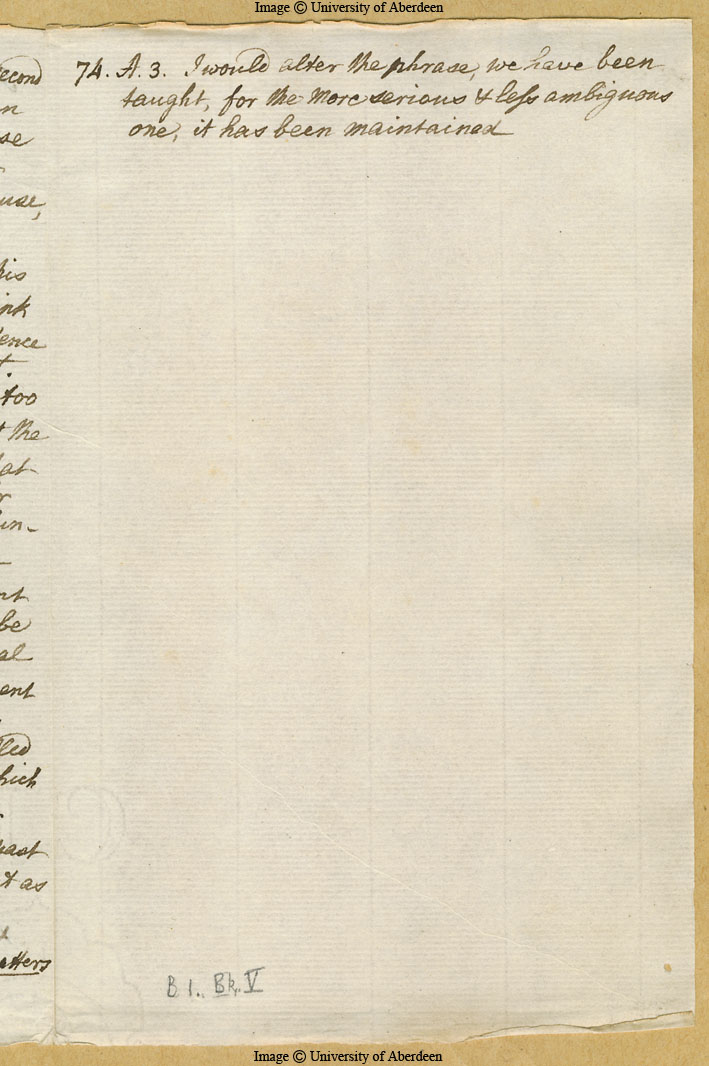 Image © University of Aberdeen
74. A. 3. I would alter the phrase, we have been
taught, for the more serious & less ambiguous
one, it has been maintained
econd
n
se
use,
his
ink
ence
t.
too
t the
hat
r
un-
nt
be
al
ent
lled
hich
past
t as
atters
B 1., Bk. V
Image © University of Aberdeen